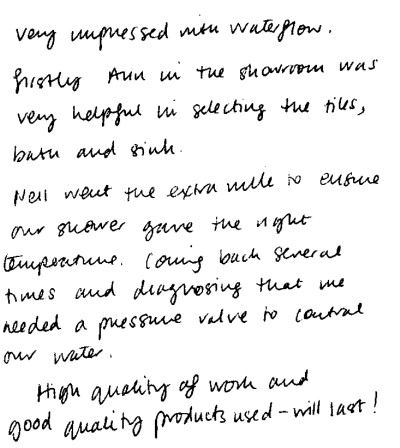 very impressed with Waterflow.
firstly Ann in the showroom was
very helpful in selecting the tiles,
bath and sink.
Neil went the extra mile to ensure
our shower gave the right
temperature. Coming back several
times and diagnosing that we
needed a pressure valve to control
our water.
High quality of work and
good quality products used - will last!